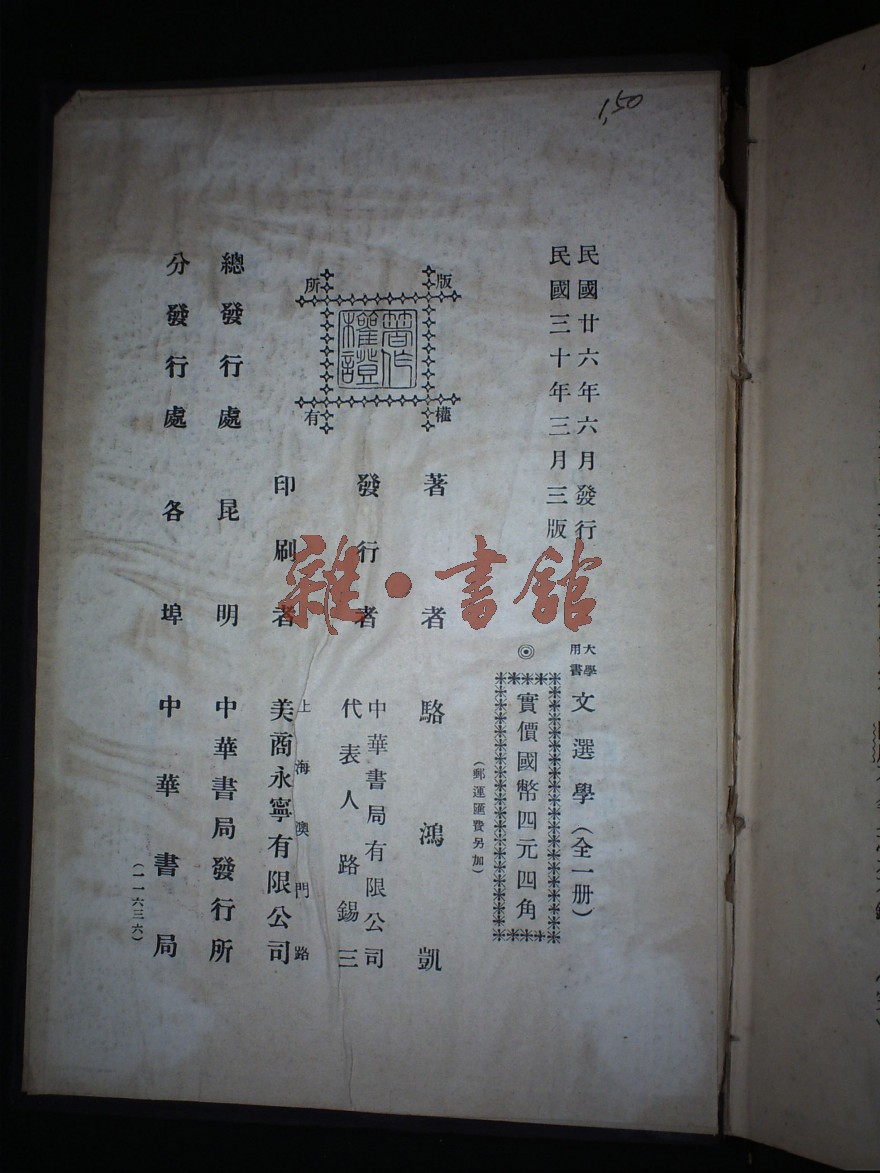 1,50
民國廿六年六月發行
民國三十年三月三版
大學用書 文選學（全一册）
◎實價國幣四元四角
（郵運匯費另加）
版權所有
著作權證
著者 駱鴻凱
發行者 中華書局有限公司
代表人 路錫三
上海澳門路
印刷者 美商永寧有限公司
總發行處 昆明 中華書局發行所
分發行處 各埠 中華書局
（一一六三六）
雜·書館